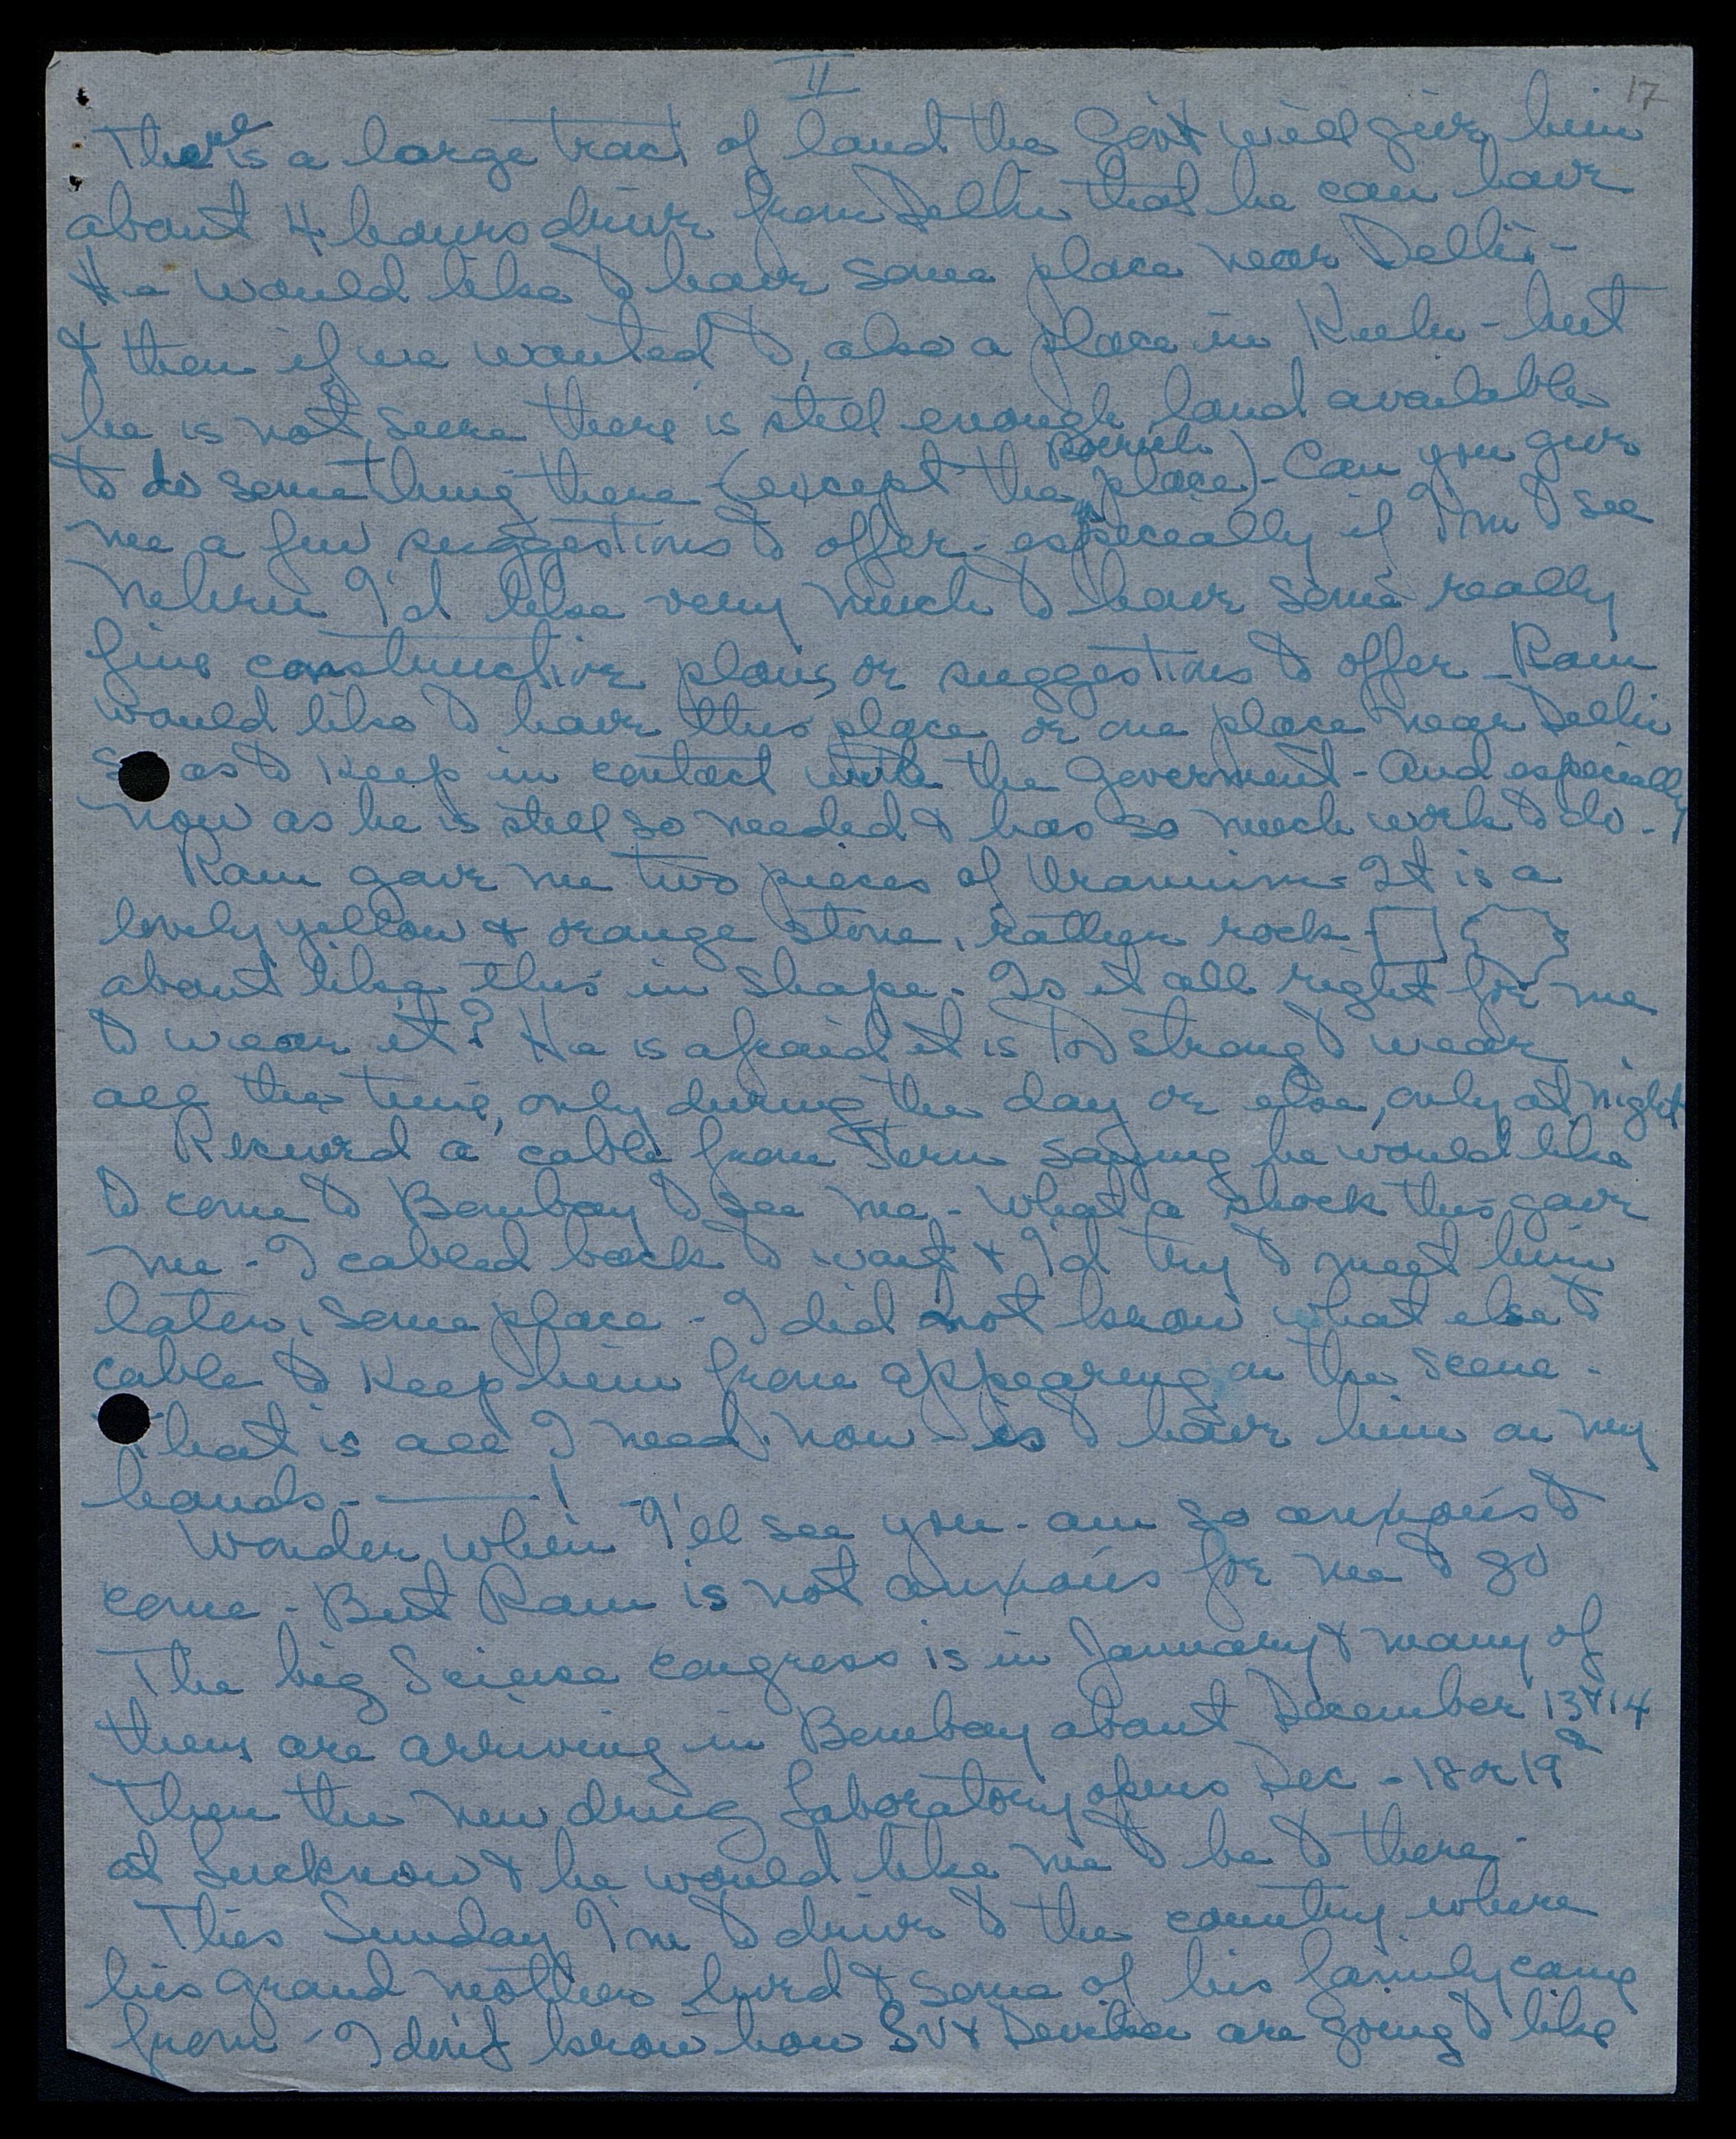 II
17
There is a large tract of land the Gov't will give him
about 4 hours drive from Delhi that he can have
He would like to have some place near Delhi -
& then if we wanted to, also a place in Kulu - but
he is not sure there is still enough land available
to do something there (except the Roerich place) - Can you give
me a few suggestions to offer - especially if I'm to see
Nehru I'd like very much to have some really
fine constructive plans or suggestions to offer - Ram
would like to have this place or one place near Delhi
so as to keep in contact with the Goverment - And especially
now as he is still so needed & has so much work to do -
Ram gave me two pieces of Uranium - It is a
lovely yellow & orange stone, rather rock -
about like this in shape - Is it all right for me
to wear it? He is afraid it is too strong to wear
all the time, only during the day or else, only at night
Received a cable from saying he would like
to come to Bombay to see me - What a shock this gave
me - I cabled back to wait & I'd try to meet him
later, some place - I did not know what else to
cable to keep him from appearing on the scene -
That is all I need now - is to have him on my
hands - ——— !
Wonder when I'll see you - am so anxious to
come - But Ram is not anxious for me to go
The big Science Congress is in January & many of
them are arriving in Bombay about December 13 & 14
Then the new drug Laboratory opens Dec - 18 or 19
at Lucknow & he would like me to be to there -
This Sunday I'm to drive to the country where
his grand mother lived & some of his family came
from - I don't know how SV & Devika are going to like